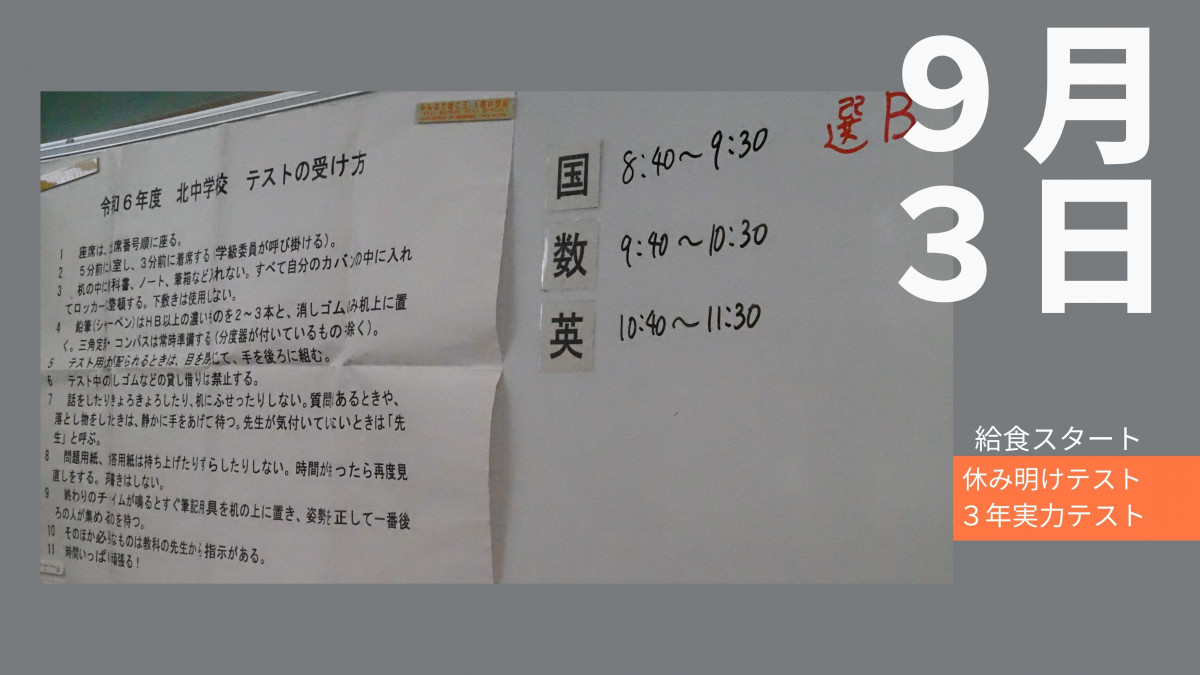 9月
3日
給食スタート
休み明けテスト
３年実力テスト
令和６年度 北中学校 テストの受け方
1 座席は、出席番号順に座る。
2 ５分前に入室し、３分前に着席する（学級委員が呼び掛ける）。
3 机の中に教科書、ノート、筆箱など入れない。すべて自分のカバンの中に入れ
てロッカーに整頓する。下敷きは使用しない。
4 鉛筆（シャーペン）はＨＢ以上の濃いものを２～３本と、消しゴムのみ机上に置
く。三角定規・コンパスは常時準備する（分度器が付いているもの除く）。
5 テスト用紙が配られるときは、目を閉じて、手を後ろに組む。
6 テスト中の消しゴムなどの貸し借りは禁止する。
7 話をしたりきょろきょろしたり、机にふせったりしない。質問があるときや、
落とし物をしたときは、静かに手をあげて待つ。先生が気付いていないときは「先
生」と呼ぶ。
8 問題用紙、解答用紙は持ち上げたりずらしたりしない。時間が余ったら再度見
直しをする。落書きはしない。
9 終わりのチャイムが鳴るとすぐ筆記用具を机の上に置き、姿勢を正して一番後
ろの人が集めるのを待つ。
10 そのほか必要なものは教科の先生から指示がある。
11 時間いっぱい頑張る！
選B
国 8:40～9:30
数 9:40～10:30
英 10:40～11:30